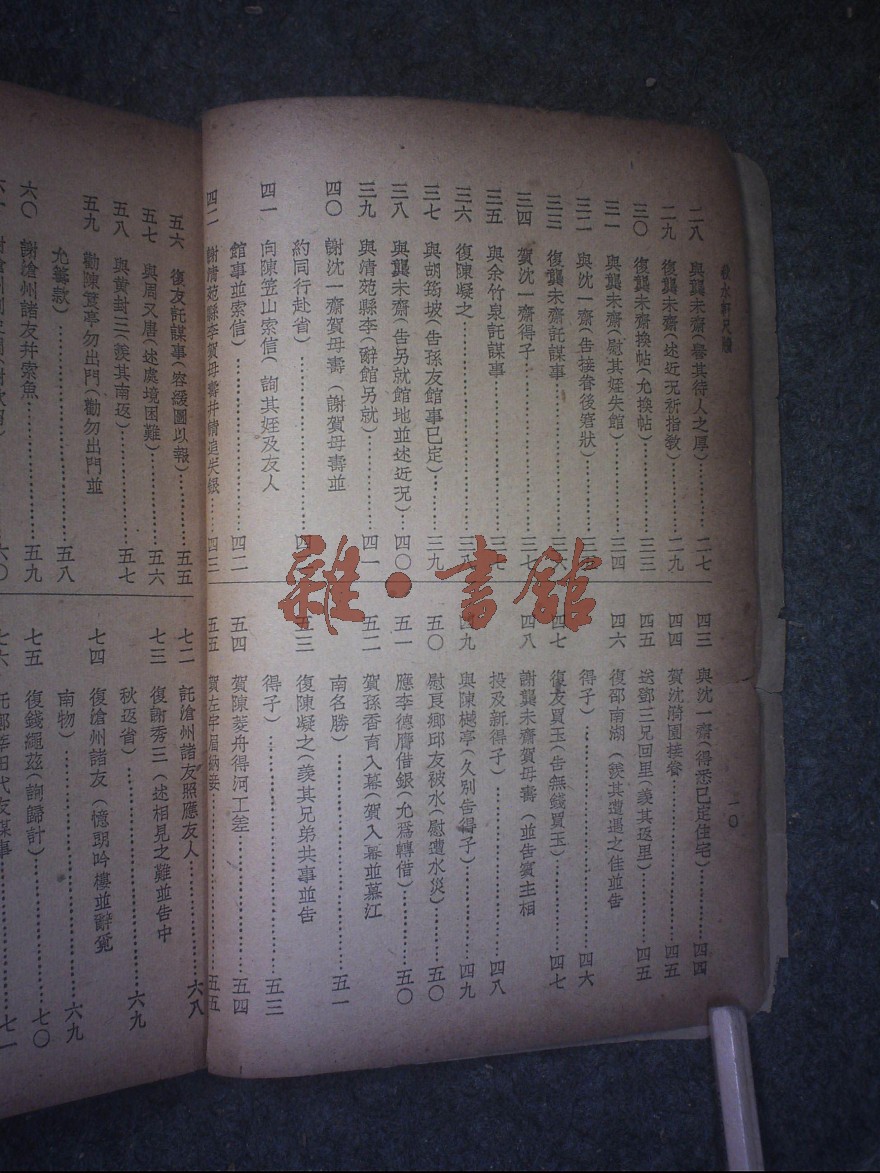 秋水軒尺牘
一〇
二八 與龔未齋(譽其待人之厚)……二七
二九 復龔未齋(述近況祈指教)……二九
三〇 復龔未齋換帖(允換帖)……三三
三一 與龔未齋(慰其姪失館)……三四
三二 與沈一齋(告接眷後窘狀)
三三 復龔未齋託謀事
三四 賀沈一齋得子……三七
三五 與余竹泉託謀事
三六 復陳凝之……三八
三七 與胡筠坡(告孫友館事已定)……三九
三八 與龔未齋(告另就館地並述近況)……四〇
三九 與清苑縣李(辭館另就)……四一
四〇 謝沈一齋賀母壽(謝賀母壽並
約同行赴省)
四一 向陳笠山索信(詢其姪及友人
館事並索信)……四二
四二 謝清苑縣李賀母壽并續追失銀……四三
四三 與沈一齋(得悉已定住宅)……四四
四四 賀沈漪園接眷……四五
四五 送鄧三兄回里(羨其返里)……四五
四六 復邵南湖(羨其遭遇之佳並告
得子)……四六
四七 復友買玉(告無錢買玉)……四七
四八 謝龔未齋賀母壽(並告賓主相
投及新得子)……四八
四九 與陳樾亭(久別告得子)……四九
五〇 慰良鄉邱友被水(慰遭水災)……五〇
五一 應李德膺借銀(允為轉借)……五〇
五二 賀孫香育入幕(賀入幕並慕江
南名勝)……五一
五三 復陳凝之(羨其兄弟共事並告
得子)……五三
五四 賀陳菱舟得河工差……五四
五五 賀左宇眉納妾……五五
五六 復友託謀事(容緩圖以報)……五五
五七 與周又唐(述處境困難)……五六
五八 與黃封三(羨其南返)……五七
五九 勸陳笠亭勿出門(勸勿出門並
允籌款)……五八
六〇 謝滄州諸友并索魚……五九
六〇
七二 託滄州諸友照應友人……六八
七三 復謝秀三(述相見之難並告中
秋返省)……六九
七四 復滄州諸友(憶玥吟樓並辭覓
南物)……六九
七五 復錢繩茲(詢歸計)……七〇
七六
代友謀事……七一